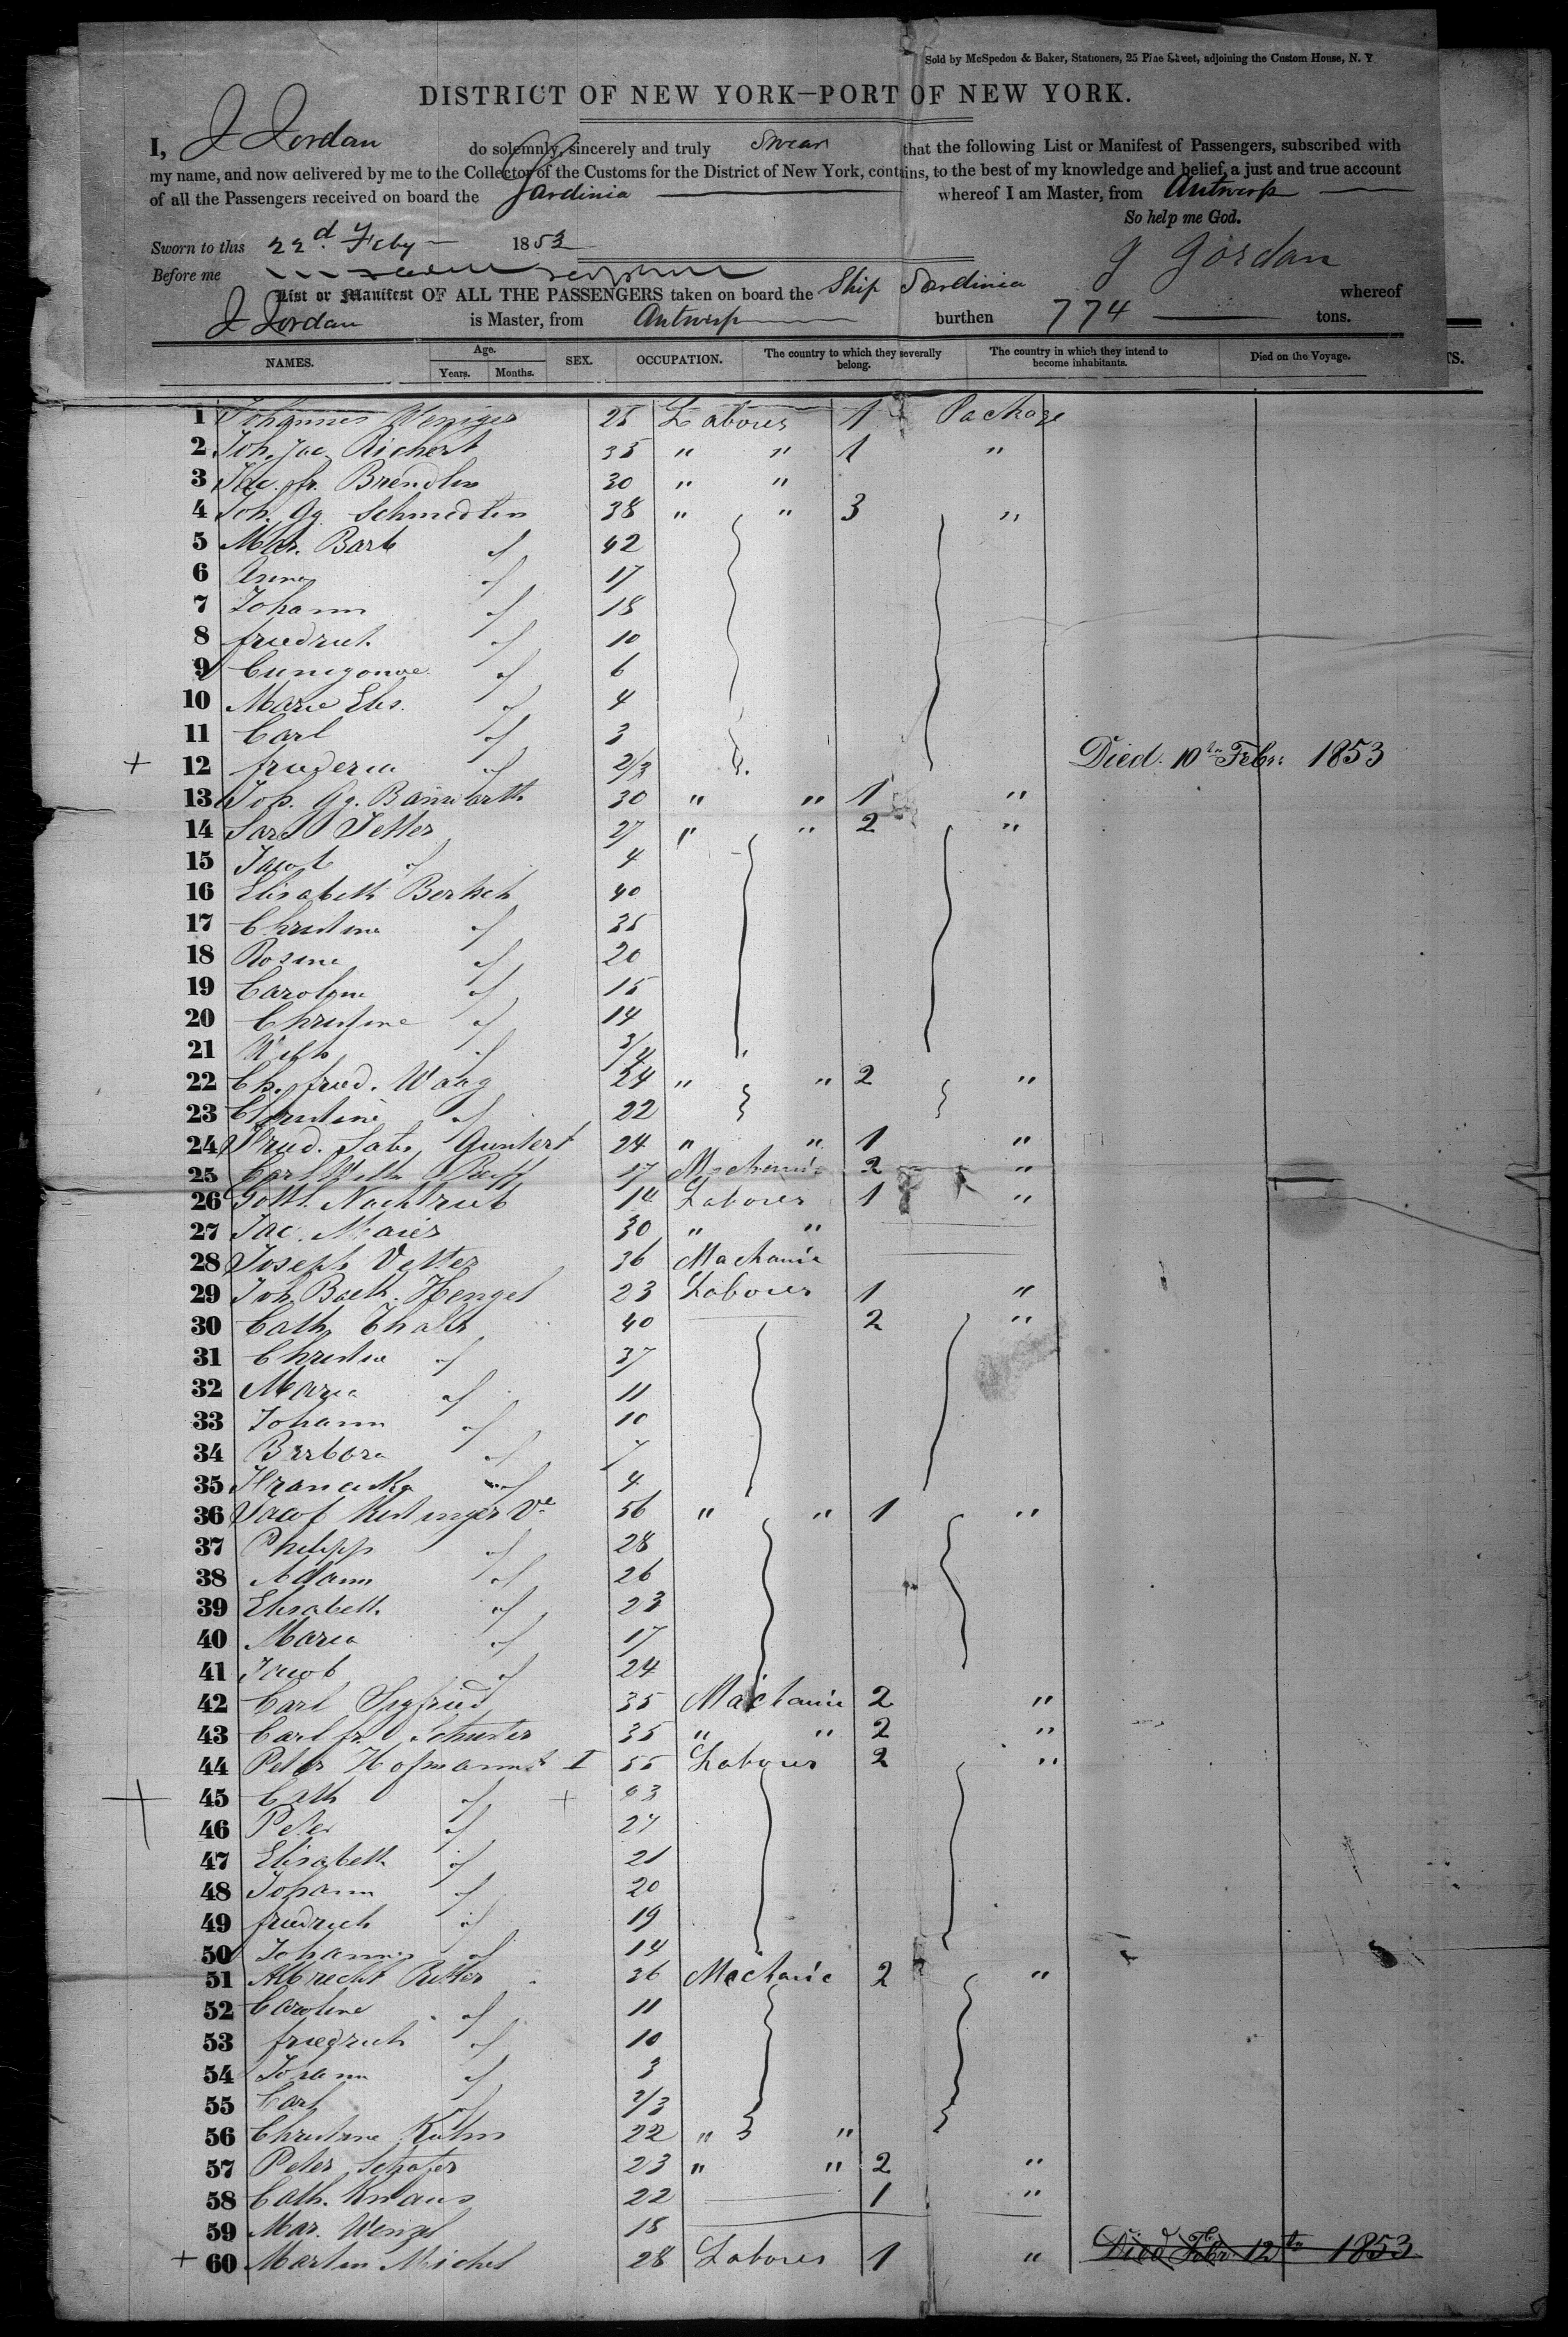 Sold by McSpedon & Baker, Stationers, 25 Pine Street, adjoining the Custom House, N. Y
DISTRICT OF NEW YORK—PORT OF NEW YORK.
I, J Jordan do solemnly, sincerely and truly swear that the following List or Manifest of Passengers, subscribed with
my name, and now delivered by me to the Collector of the Customs for the District of New York, contains, to the best of my knowledge and belief, a just and true account
of all the Passengers received on board the Sardinia whereof I am Master, from Antwerp
So help me God.
Sworn to this 22d. Feby 1853
J Jordan
Before me
List or Manifest OF ALL THE PASSENGERS taken on board the Ship Sardinia whereof
J Jordan is Master, from Antwerp burthen 774 tons.
NAMES. Age. Years. Months. SEX. OCCUPATION. The country to which they severally belong. The country in which they intend to become inhabitants. Died on the Voyage. TS.
1 Johannes Weniger 25 Labourer 1 Package
2 Joh. Jac. Richert 35 " " 1 "
3 Jac. fr. Brendlin 30 " "
4 Joh. Gg. Schmedlin 38 " " 3 "
5 Mar. Barb 42
6 Anna 17
7 Johann 18
8 friedrich 10
9 Cunigonde 6
10 Marie Elis. 4
11 Carl 3
+ 12 friederica 2/3 Died 10th Febr: 1853
13 Joh. Gg. Bannwarth 30 " " 1 "
14 Sara Jetter 27 " " 2 "
15 Jacob 4
16 Elisabeth Bertsch 40
17 Christina 35
18 Rosine 20
19 Carolyne 15
20 Christine 14
21 Wilh 3/4
22 Ch. fried. Waag 24 " " 2 "
23 Christine 22
24 Fried. Guntert 24 " " 1 "
25 Carl Wilh 17 Mechanic 2 "
26 Gottl. Nachtrieb 14 Labourer 1 "
27 Jac. Maier 30 " "
28 Joseph Vetter 36 Machanic
29 Joh. Hengel 23 Labourer 1 "
30 Cath. Thaler 40 2 "
31 Christia 37
32 Maria 11
33 Johann 10
34 Barbara 7
35 Franciska 4
36 Jacob 56 " " 1 "
37 Philipp 28
38 Adam 26
39 Elisabeth 23
40 Maria 17
41 Jacob 24
42 Carl Sigfried 35 Machanic 2 "
43 Carl fr. Schuster 35 " " 2 "
44 Peter Hofmann I 55 Labourer 2 "
+ 45 Cath +
46 Peter 27
47 Elisabeth 21
48 Johann 20
49 friedrich 19
50 Johannes 14
51 Albrecht Ritter 36 Mechanic 2 "
52 Caroline 11
53 friedrich 10
54 Johann 3
55 Carl 2/3
56 Christine Kuhn 22 " "
57 Peter Schafer 23 " " 2 "
58 Cath. Knaus 22 1 "
59 Mar. Wenzel 18
+ 60 Martin Michel 28 Labourer 1 " Died Febr 12th 1853